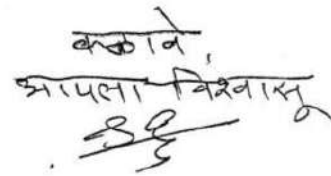 कळावे
आपला विश्वासू